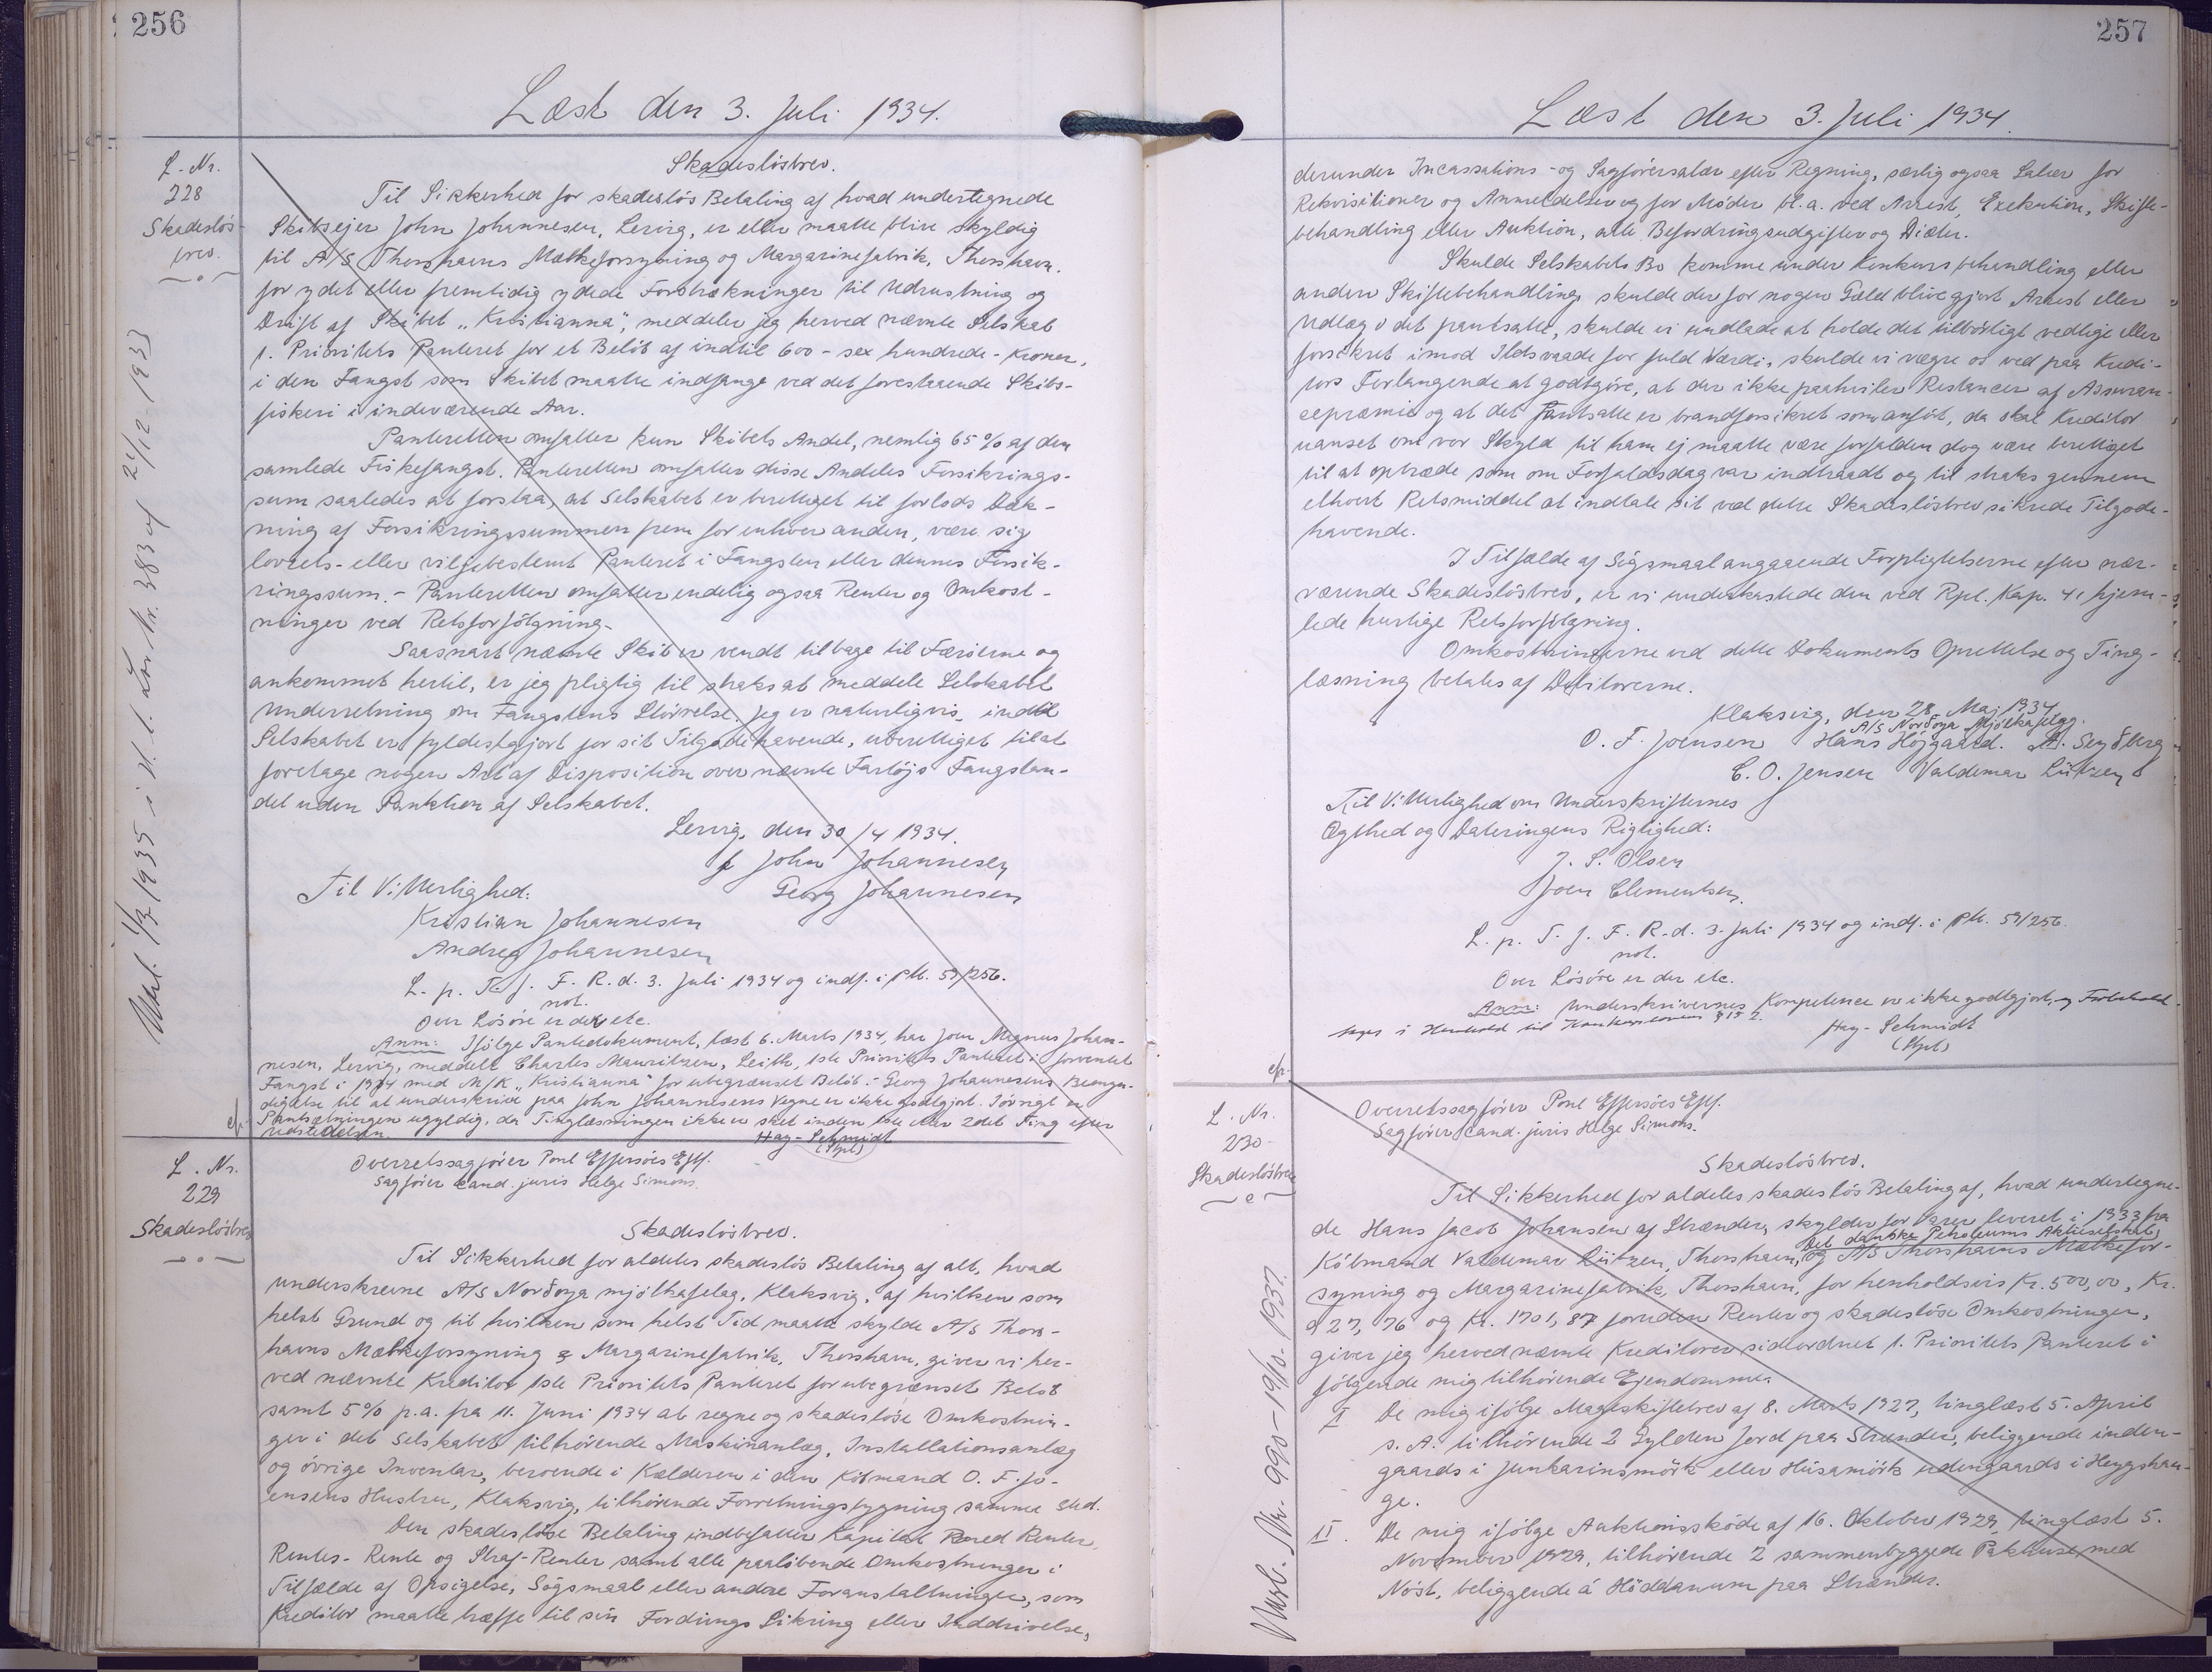 256
Læst den 3. Juli 1934.
L. Nr.
228
Skadesløs-
brev.
Skadesløsbrev.
Til Sikkerhed for skadesløs Betaling af hvad undertegnede
Skibsejer John Johannesen, Lervig, er eller maatte blive skyldig
til A/S Thorshavns Mælkeforsyning og Margarinefabrik, Thorshavn,
for ydet eller fremtidig ydede Forstrækninger til Udrustning og
Drift af Skibet "Kristianna", meddeler jeg herved nævnte Selskab
1. Prioritets Panteret for et Beløb af indtil 600 - sex hundrede - Kroner,
i den Fangst som Skibet maatte indfange ved det forestaaende Skibs-
fiskeri i indeværende Aar.
Panteretten omfatter kun Skibets Andel, nemlig 65 % af den
samlede Fiskefangst. Panteretten omfatter disse Andeles Forsikrings-
sum saaledes at forstaa, at Selskabet er berettiget til forlods Dæk-
ning af Forsikringssummen frem for enhver anden, være sig
lovbests- eller viljebestemt Panteret i Fangsten eller dennes Forsik-
ringssum. - Panteretten omfatter endelig ogsaa Renter og Omkost-
ninger ved Retsforfølgning.
Saasnart nævnte Skib er vendt tilbage til Færøerne og
ankommet hertil, er jeg pligtig til straks at meddele Selskabet
Underretning om Fangstens Størrelse. Jeg er naturligvis, indtil
Selskabet er fyldestgjort for sit Tilgodehavende, uberettiget til at
foretage nogen Art af Disposition over nævnte Fartøjs Fangstan-
del uden Sanktion af Selskabet.
Lervig, den 30/4 1934.
f John Johannesen
Georg Johannesen
Til Vitterlighed:
Kristian Johannesen
Andrea Johannesen
L. p. T. f. F. R. d. 3. Juli 1934 og indf. i ptb. 59/256.
not.
Over Løsøre er der etc.
Anm: Ifølge Pantedokument, læst 6. Marts 1934, har Joen Magnus Johan-
nesen, Lervig, meddelt Charles Mauritzen, Leith, 1ste Prioritets Panteret i forventet
Fangst i 1934 med M/K "Kristianna" for ubegrænset Beløb. - Georg Johannesens Bemyn-
digelse til at underskrive paa John Johannesens Vegne er ikke godtgjort. Iøvrigt er
Pantsætningen ugyldig, da Tinglæsningen ikke er sket inden 1ste eller 2det Ting efter
Udstedelsen.
Hay-Schmidt
(Spl)
Udsl. 1/3 1935 i h. t. Lov Nr. 383 af 21/12 1933
cf.
L. Nr.
229
Skadesløsbrev
Overretssagfører Poul Effersøes Eftf.
Sagfører cand. juris Helge Simons.
Skadesløsbrev.
Til Sikkerhed for aldeles skadesløs Betaling af alt, hvad
underskrevne A/S Norðoya mjólkafelag, Klaksvig, af hvilken som
helst Grund og til hvilken som helst Tid maatte skylde A/S Thors-
havns Mælkeforsyning & Margarinefabrik, Thorshavn, giver vi her-
ved nævnte Kreditor 1ste Prioritets Panteret for ubegrænset Beløb
samt 5% p.a. fra 11. Juni 1934 at regne og skadesløse Omkostnin-
ger i det Selskabet tilhørende Maskinanlæg, Installationsanlæg
og øvrige Inventar, beroende i Kælderen i den Købmand O. F. Jo-
ensens Hustru, Klaksvig, tilhørende Forretningsbygning samme Sted.
Den skadesløse Betaling indbefatter Kapital med Renter,
Rentes-Rente og Straf-Renter samt alle paaløbende Omkostninger i
Tilfælde af Opsigelse, Søgsmaal eller andre Foranstaltninger, som
Kreditor maatte træffe til sin Fordrings Sikring eller Inddrivelse,
257
Læst den 3. Juli 1934.
derunder Incassations- og Sagførersalær efter Regning, særlig ogsaa Salær for
Rekvisitioner og Anmeldelser og for Møder bl.a. ved Arrest, Exekution, Skifte-
behandling eller Auktion, alle Befordringsudgifter og Diæter.
Skulde Selskabets Bo komme under Konkursbehandling eller
anden Skiftebehandling, skulde der for nogen Gæld blive gjort Arrest eller
Udlæg i det pantsatte, skulde vi undlade at holde det tilbørligt vedlige eller
forsikret imod Ildsvaade for fuld Værdi, skulde vi vægre os ved paa Kredi-
tors Forlangende at godtgøre, at der ikke paahviler Restancer af Assuran-
cepræmie og at det Pantsatte er brandforsikret som anført, da skal Kreditor
uanset om vor Skyld til ham ej maatte være forfalden dog være berettiget
til at optræde som om Forfaldsdag var indtraadt og til straks gennem
ethvert Retsmiddel at indtale sit ved dette Skadesløsbrev sikrede Tilgode-
havende.
I Tilfælde af Søgsmaal angaaende Forpligtelserne efter nær-
værende Skadesløsbrev, er vi underkastede den ved Rpl. Kap. 41 hjem-
lede hurtige Retsforfølgning.
Omkostningerne ved dette Dokuments Oprettelse og Ting-
læsning betales af Debitorerne.
Klaksvig, den 28. Maj 1934
A/S Norðoya Mjólkafelag.
O. F. Joensen Hans Højgaard. A. Seyðberg
C. O. Jensen Valdemar Lützen
Til Vitterlighed om Underskrifternes
Ægthed og Dateringens Rigtighed:
J. S. Olsen
Joen Clementsen.
L. p. T. f. F. R. d. 3. Juli 1934 og indf. i ptb. 59/256.
not.
Over Løsøre er der etc.
Anm: Underskrivernes Kompetence er ikke godtgjort, og Forbehold
tages i Henhold til Konkurslovens § 15 2.
Hay-Schmidt
(Spl)
cf.
L. Nr.
230
Skadesløsbrev
Overretssagfører Poul Effersøes Eftf.
Sagfører cand. juris Helge Simons.
Skadesløsbrev.
Til Sikkerhed for aldeles skadesløs Betaling af, hvad undertegne-
de Hans Jacob Johansen af Strænder, skylder for Varer leveret i 1933 fra
Det danske Petroleums Aktieselskab
Købmand Valdemar Lützen, Thorshavn, og A/S Thorshavns Mælkefor-
syning og Margarinefabrik, Thorshavn, for henholdsvis Kr. 500,00, Kr.
927,76 og Kr. 1701,87 foruden Renter og skadesløse Omkostninger,
giver jeg herved nævnte Kreditorer sideordnet 1. Prioritets Panteret i
følgende mig tilhørende Ejendomme.
I De mig ifølge Mageskiftebrev af 8. Marts 1927, tinglæst 5. April
s. A. tilhørende 2 Gylden Jord paa Strænder, beliggende inden-
gaards i Junkarinsmørk eller Húsamørk udengaards i Heyggshau-
ge.
II. De mig ifølge Auktionsskøde af 16. Oktober 1929, tinglæst 5.
November 1929, tilhørende 2 sammenbyggede Pakhuse med
Nøst, beliggende á Høddanum paa Strænder.
Udsl. Nr. 990 - 19/10. 1937